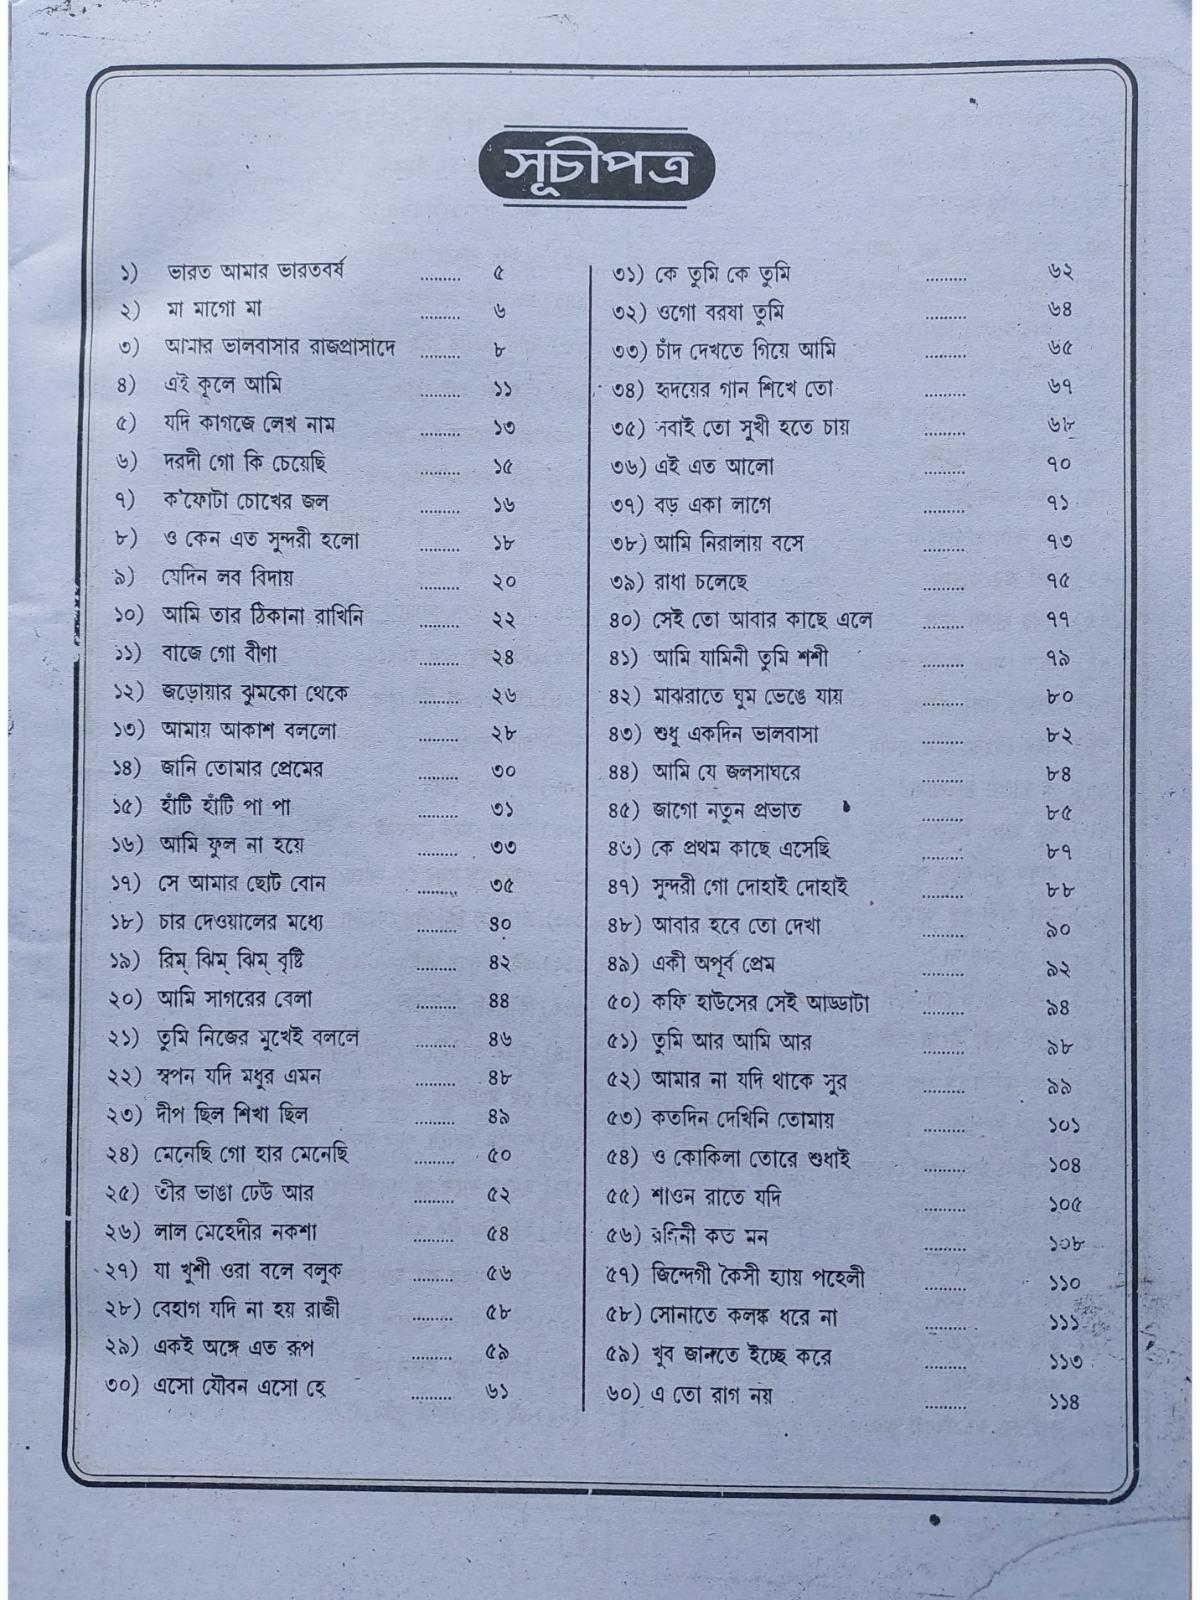 সূচীপত্র
১) ভারত আমার ভারতবর্ষ ......... ৫
২) মা মাগো মা ......... ৬
৩) আমার ভালবাসার রাজপ্রাসাদে ......... ৮
৪) এই কূলে আমি ......... ১১
৫) যদি কাগজে লেখ নাম ......... ১৩
৬) দরদী গো কি চেয়েছি ......... ১৫
৭) ক'ফোটা চোখের জল ......... ১৬
৮) ও কেন এত সুন্দরী হলো ......... ১৮
৯) যেদিন লব বিদায় ......... ২০
১০) আমি তার ঠিকানা রাখিনি ......... ২২
১১) বাজে গো বীণা ......... ২৪
১২) জড়োয়ার ঝুমকো থেকে ......... ২৬
১৩) আমায় আকাশ বললো ......... ২৮
১৪) জানি তোমার প্রেমের ......... ৩০
১৫) হাঁটি হাঁটি পা পা ......... ৩১
১৬) আমি ফুল না হয়ে ......... ৩৩
১৭) সে আমার ছোট বোন ......... ৩৫
১৮) চার দেওয়ালের মধ্যে ......... ৪০
১৯) রিম্ ঝিম্ ঝিম্ বৃষ্টি ......... ৪২
২০) আমি সাগরের বেলা ......... ৪৪
২১) তুমি নিজের মুখেই বললে ......... ৪৬
২২) স্বপন যদি মধুর এমন ......... ৪৮
২৩) দীপ ছিল শিখা ছিল ......... ৪৯
২৪) মেনেছি গো হার মেনেছি ......... ৫০
২৫) তীর ভাঙা ঢেউ আর ......... ৫২
২৬) লাল মেহেদীর নকশা ......... ৫৪
২৭) যা খুশী ওরা বলে বলুক ......... ৫৬
২৮) বেহাগ যদি না হয় রাজী ......... ৫৮
২৯) একই অঙ্গে এত রূপ ......... ৫৯
৩০) এসো যৌবন এসো হে ......... ৬১
৩১) কে তুমি কে তুমি ......... ৬২
৩২) ওগো বরষা তুমি ......... ৬৪
৩৩) চাঁদ দেখতে গিয়ে আমি ......... ৬৫
৩৪) হৃদয়ের গান শিখে তো ......... ৬৭
৩৫) সবাই তো সুখী হতে চায় ......... ৬৮
৩৬) এই এত আলো ......... ৭০
৩৭) বড় একা লাগে ......... ৭১
৩৮) আমি নিরালায় বসে ......... ৭৩
৩৯) রাধা চলেছে ......... ৭৫
৪০) সেই তো আবার কাছে এলে ......... ৭৭
৪১) আমি যামিনী তুমি শশী ......... ৭৯
৪২) মাঝরাতে ঘুম ভেঙে যায় ......... ৮০
৪৩) শুধু একদিন ভালবাসা ......... ৮২
৪৪) আমি যে জলসাঘরে ......... ৮৪
৪৫) জাগো নতুন প্রভাত ......... ৮৫
৪৬) কে প্রথম কাছে এসেছি ......... ৮৭
৪৭) সুন্দরী গো দোহাই দোহাই ......... ৮৮
৪৮) আবার হবে তো দেখা ......... ৯০
৪৯) একী অপূর্ব প্রেম ......... ৯২
৫০) কফি হাউসের সেই আড্ডাটা ......... ৯৪
৫১) তুমি আর আমি আর ......... ৯৮
৫২) আমার না যদি থাকে সুর ......... ৯৯
৫৩) কতদিন দেখিনি তোমায় ......... ১০১
৫৪) ও কোকিলা তোরে শুধাই ......... ১০৪
৫৫) শাওন রাতে যদি ......... ১০৫
৫৬) রঙ্গিনী কত মন ......... ১০৮
৫৭) জিন্দেগী কৈসী হ্যায় পহেলী ......... ১১০
৫৮) সোনাতে কলঙ্ক ধরে না ......... ১১১
৫৯) খুব জানতে ইচ্ছে করে ......... ১১৩
৬০) এ তো রাগ নয় ......... ১১৪